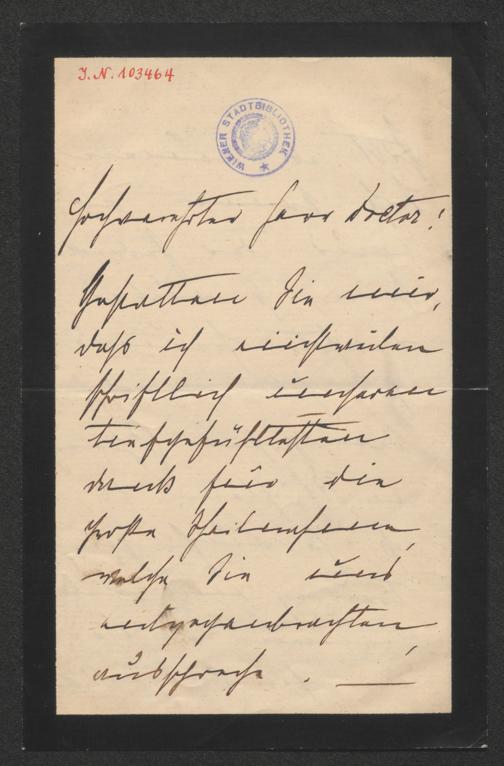 J.N. 103464
WIENER STADTBIBLIOTHEK
Hochverehrter Herr Doctor!
Gestatten Sie mir,
daß ich einstweilen
schriftlich unseren
tiefgefühltesten
Dank für die
große Theilnahme,
welche Sie uns
entgegenbrachten,
ausspreche. —